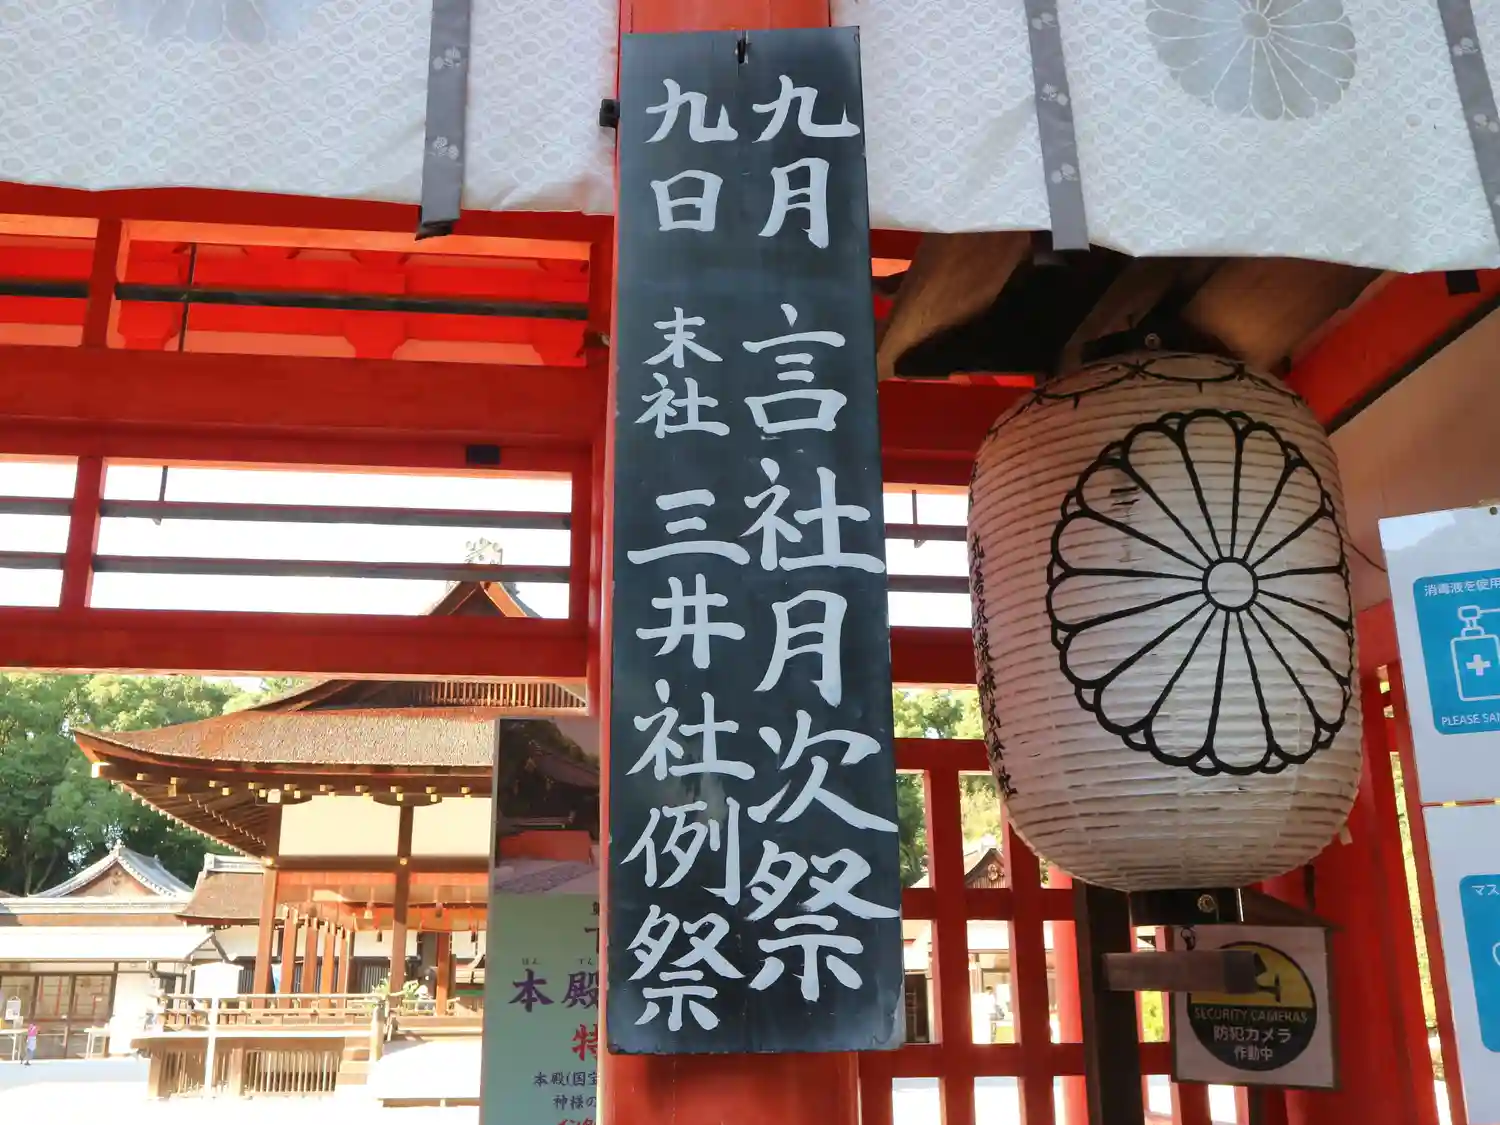 九月 言社月次祭
九日 末社 三井社例祭
本殿
ほん
でん
特
本殿(国宝
神様の
消毒液を使用
PLEASE SA
マス
SECURITY CAMERAS
防犯カメラ
作動中